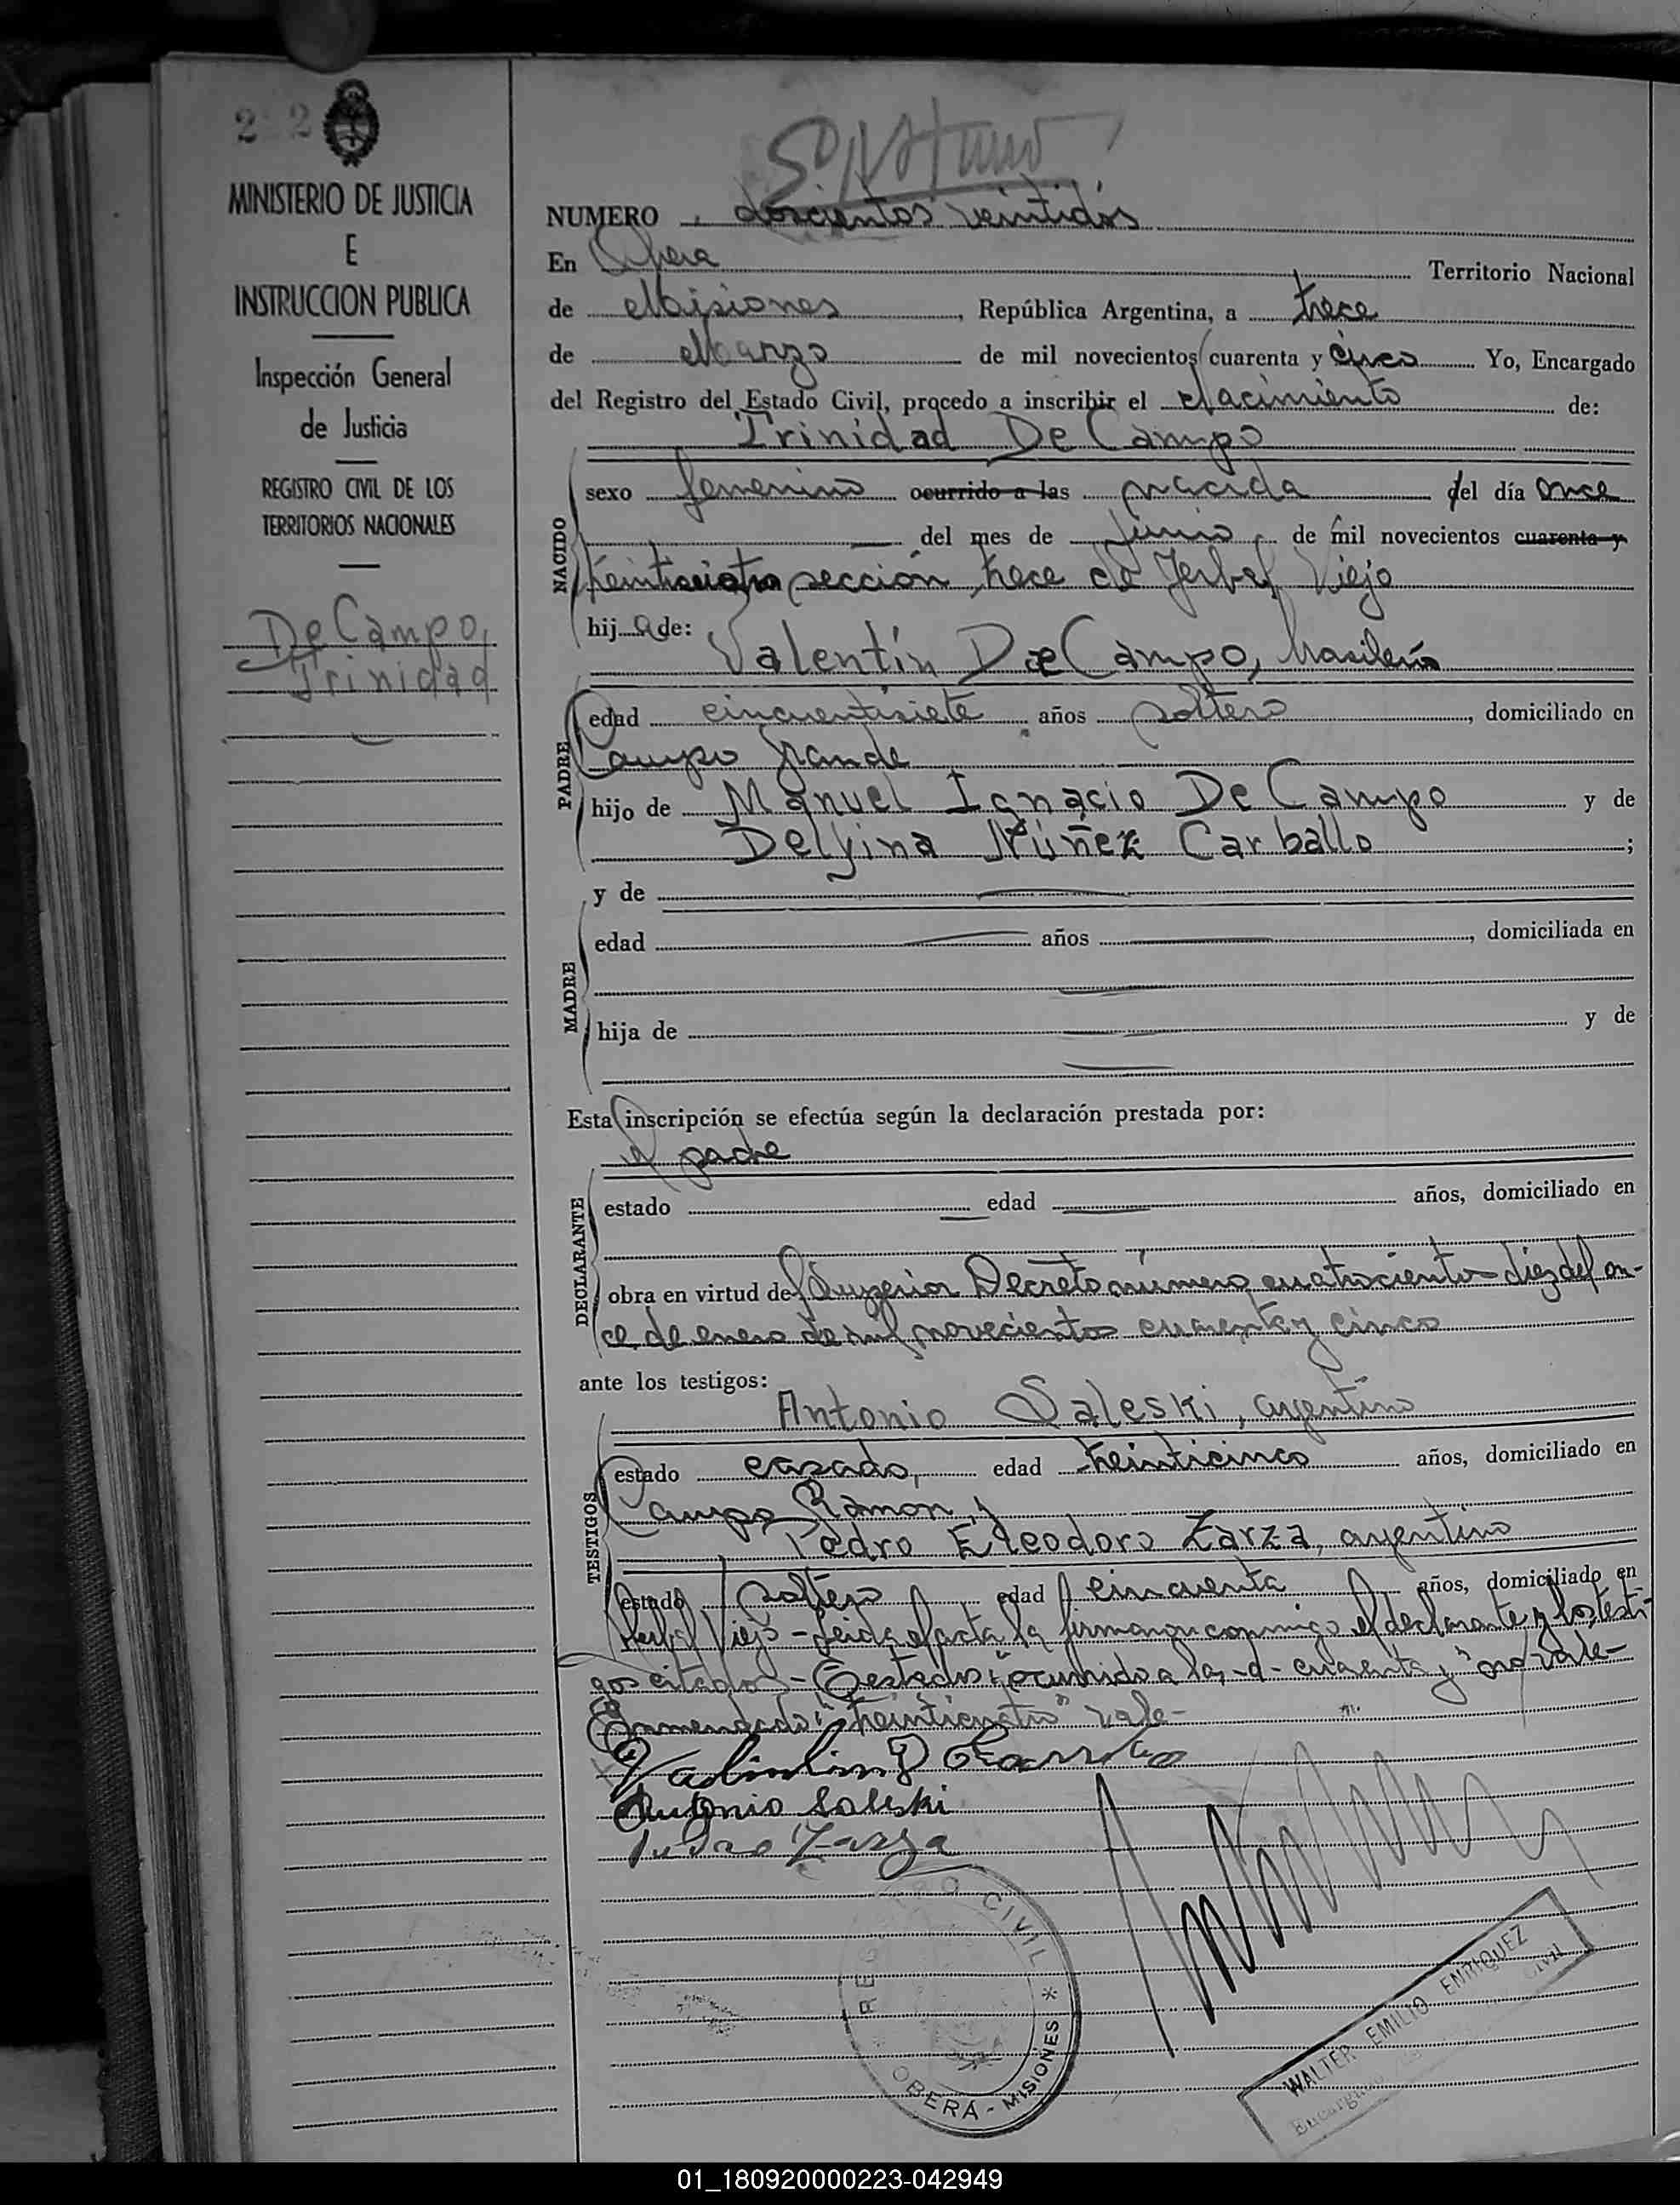 222
MINISTERIO DE JUSTICIA
E
INSTRUCCION PUBLICA
Inspección General
de Justicia
REGISTRO CIVIL DE LOS
TERRITORIOS NACIONALES
De Campo,
Trinidad
NUMERO doscientos veintidós
En Obera Territorio Nacional
de Misiones, República Argentina, a trece
de Marzo de mil novecientos cuarenta y cinco Yo, Encargado
del Registro del Estado Civil, procedo a inscribir el Nacimiento de:
Trinidad De Campo
NACIDO
sexo femenino ocurrido a las nacida del día once
del mes de Junio de mil novecientos cuarenta y
treinticuatro sección trece de Yerbal Viejo
hija de:
Valentín De Campo, brasileño
PADRE
edad cincuentisiete años soltero, domiciliado en
Campo Grande
hijo de Manuel Ignacio De Campo y de
Delfina Núñez Carballo ;
MADRE
y de
edad años , domiciliada en
hija de y de
Esta inscripción se efectúa según la declaración prestada por:
el padre
DECLARANTE
estado edad años, domiciliado en
obra en virtud del Superior Decreto número cuatrocientos diez del on-
ce de enero de mil novecientos cuarenta y cinco
ante los testigos:
TESTIGOS
Antonio Saleski, argentino
estado casado, edad treinticinco años, domiciliado en
Campo Ramon, y
Pedro Eleodoro Zarza, argentino
estado soltero edad cincuenta años, domiciliado en
Yerbal Viejo - Leida el acta la firmaron conmigo el declarante y los testi-
gos citados - Testado: "ocurrido a las -d- cuarenta y" no vale-
Enmendado: "treinticuatro" vale-
Antonio Saleski
Pedro Zarza
REGISTRO CIVIL
* OBERÁ - MISIONES *
WALTER EMILIO ENRIQUEZ
Encargado Civil
01_180920000223-042949